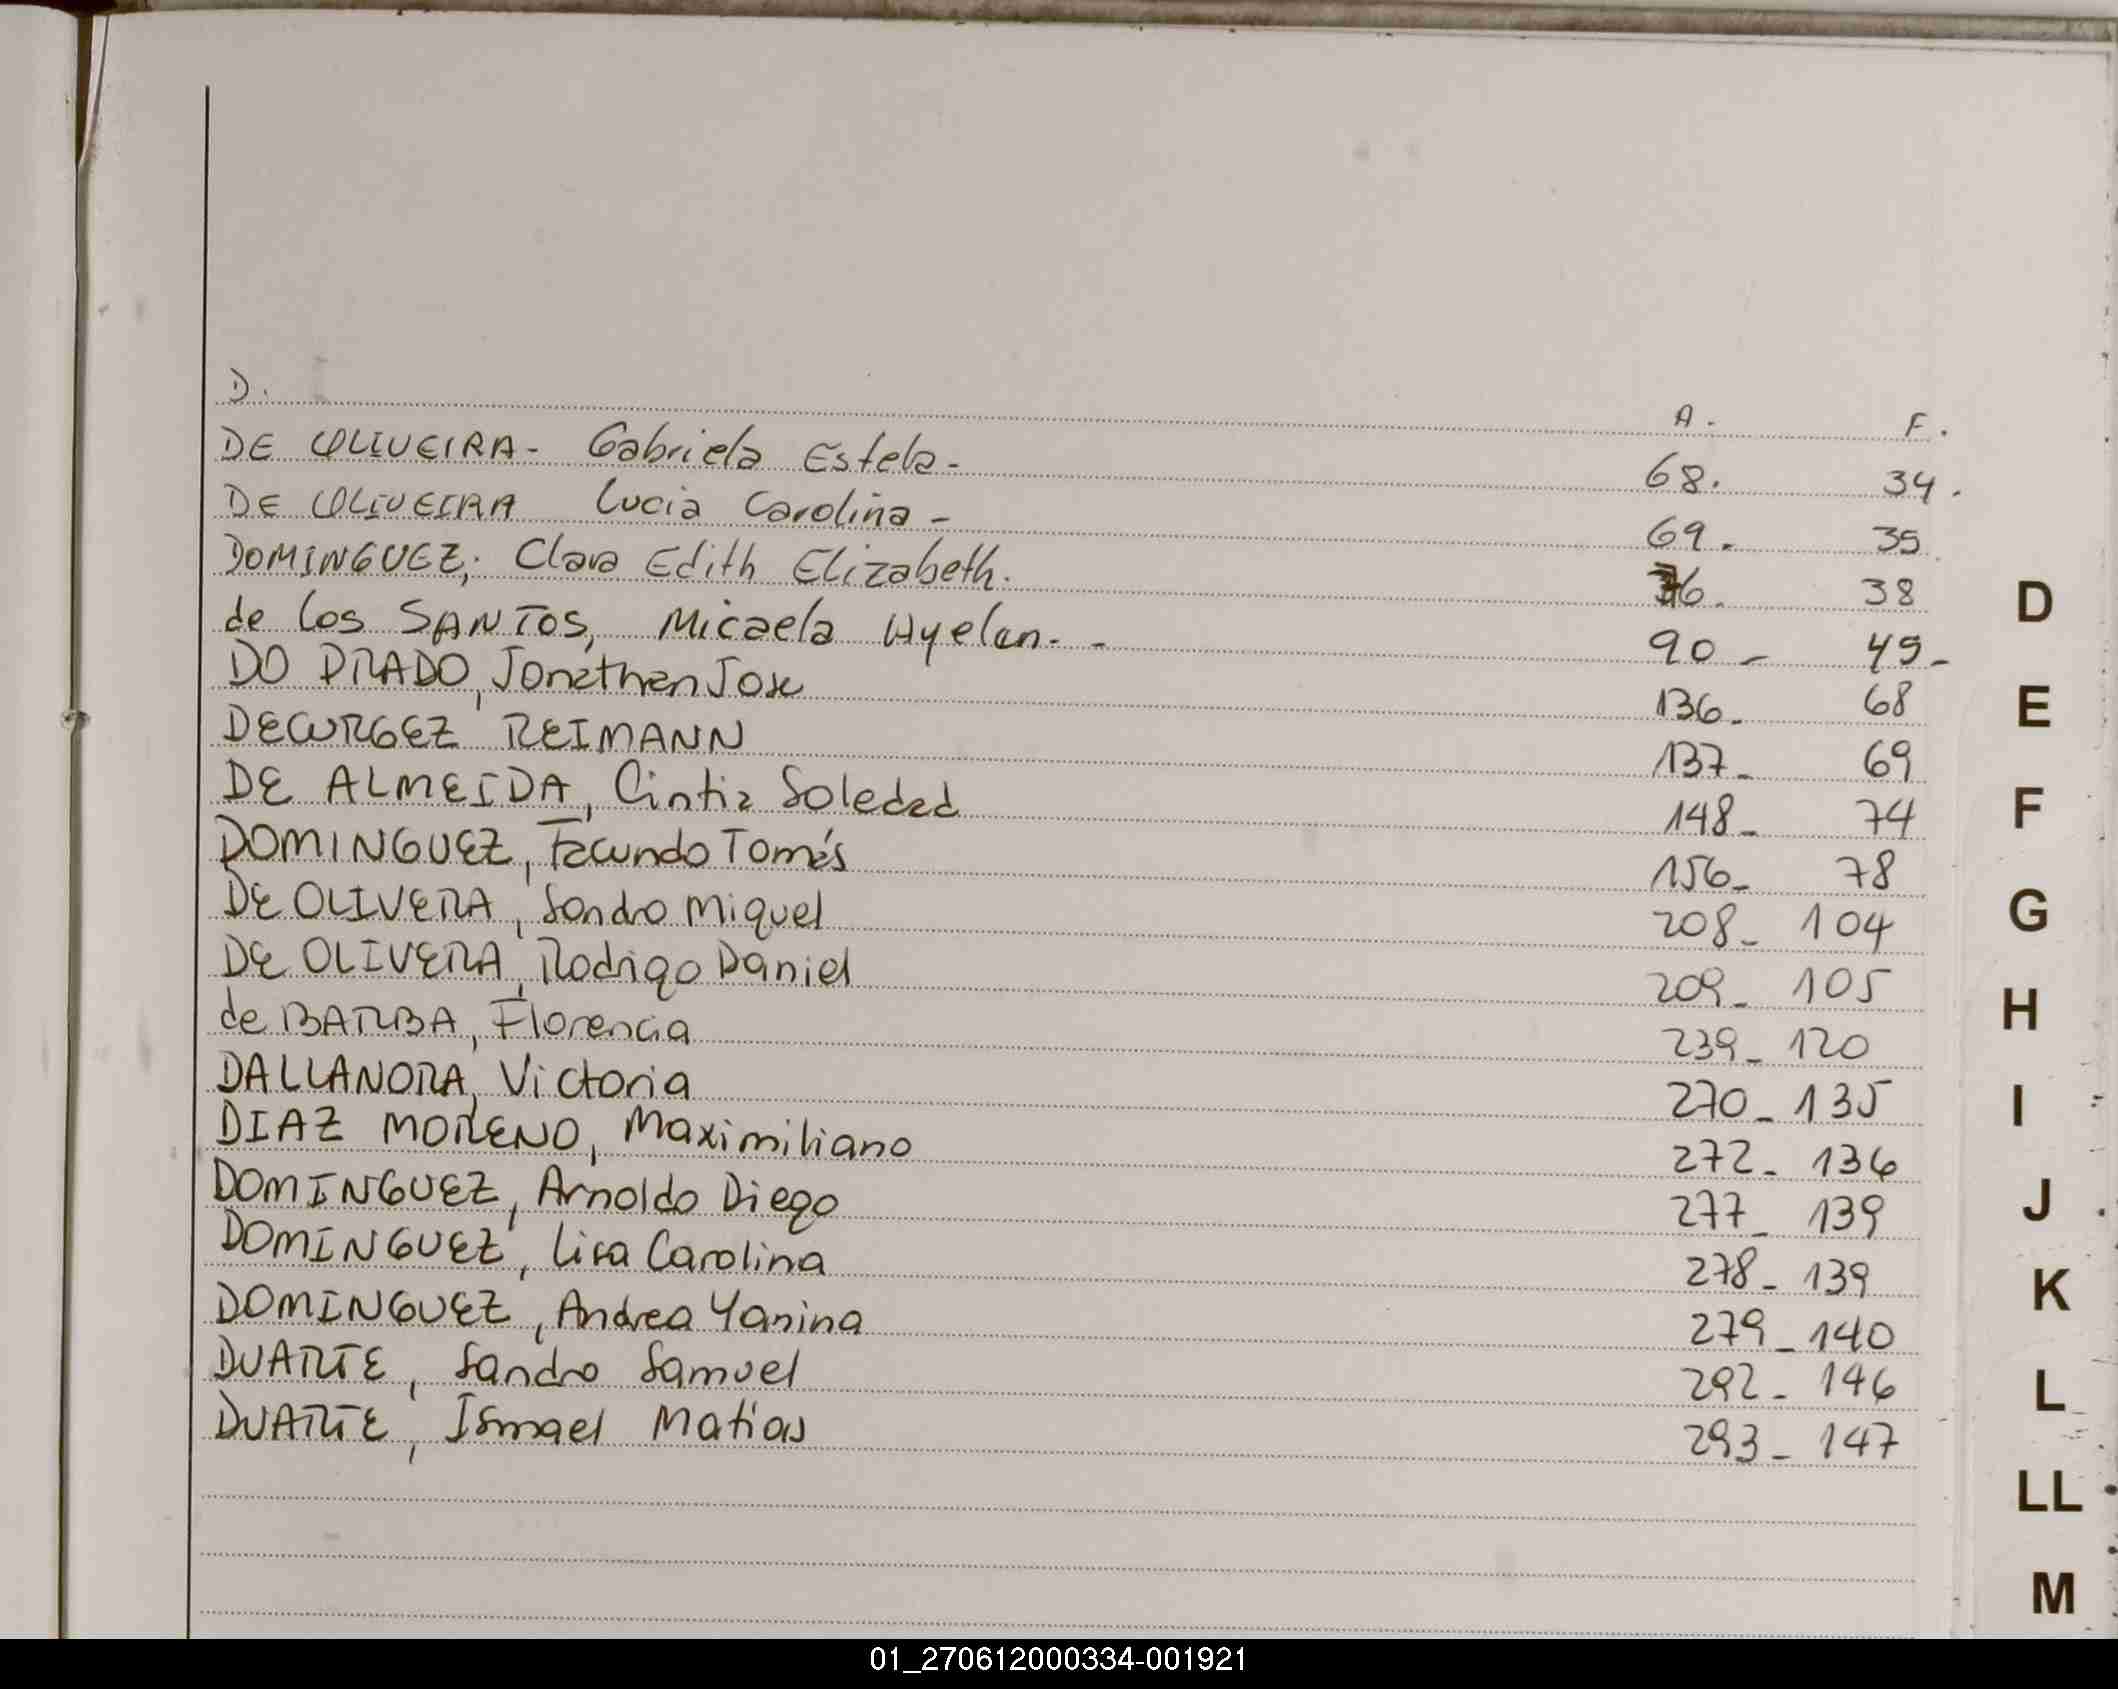 D. A. F.
DE OLIVEIRA- Gabriela Estela- 68. 34.
DE OLIVEIRA Lucia Carolina- 69. 35
DOMINGUEZ, Clara Edith Elizabeth. 76. 38
de los SANTOS, Micaela Ayelen.- 90- 45-
DO PRADO, Jonathan Jose 136- 68
DECURGEZ REIMANN 137- 69
DE ALMEIDA, Cintia Soledad 148- 74
DOMINGUEZ, Facundo Tomás 156- 78
DE OLIVERA, Sandro Miguel 208- 104
DE OLIVERA, Rodrigo Daniel 209- 105
de BARBA, Florencia 239- 120
DALLANORA, Victoria 270- 135
DIAZ MORENO, Maximiliano 272- 136
DOMINGUEZ, Arnoldo Diego 277- 139
DOMINGUEZ, Carolina 278- 139
DOMINGUEZ, Andrea Yanina 279- 140
DUARTE, Sandro Samuel 292- 146
DUARTE, Ismael Matias 293- 147
D
E
F
G
H
I
J
K
L
LL
M
01_270612000334-001921